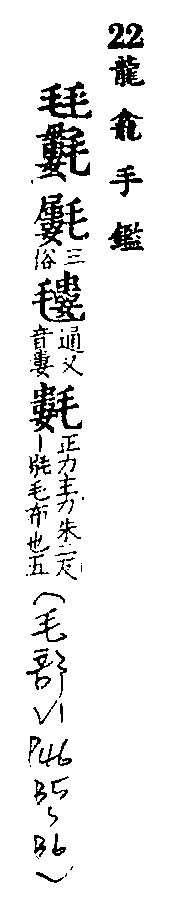 22龍龕手鑑
三俗 通又音婁 氀 正力主力朱二反丨毛布也五(毛部VI P46 B5、B6)